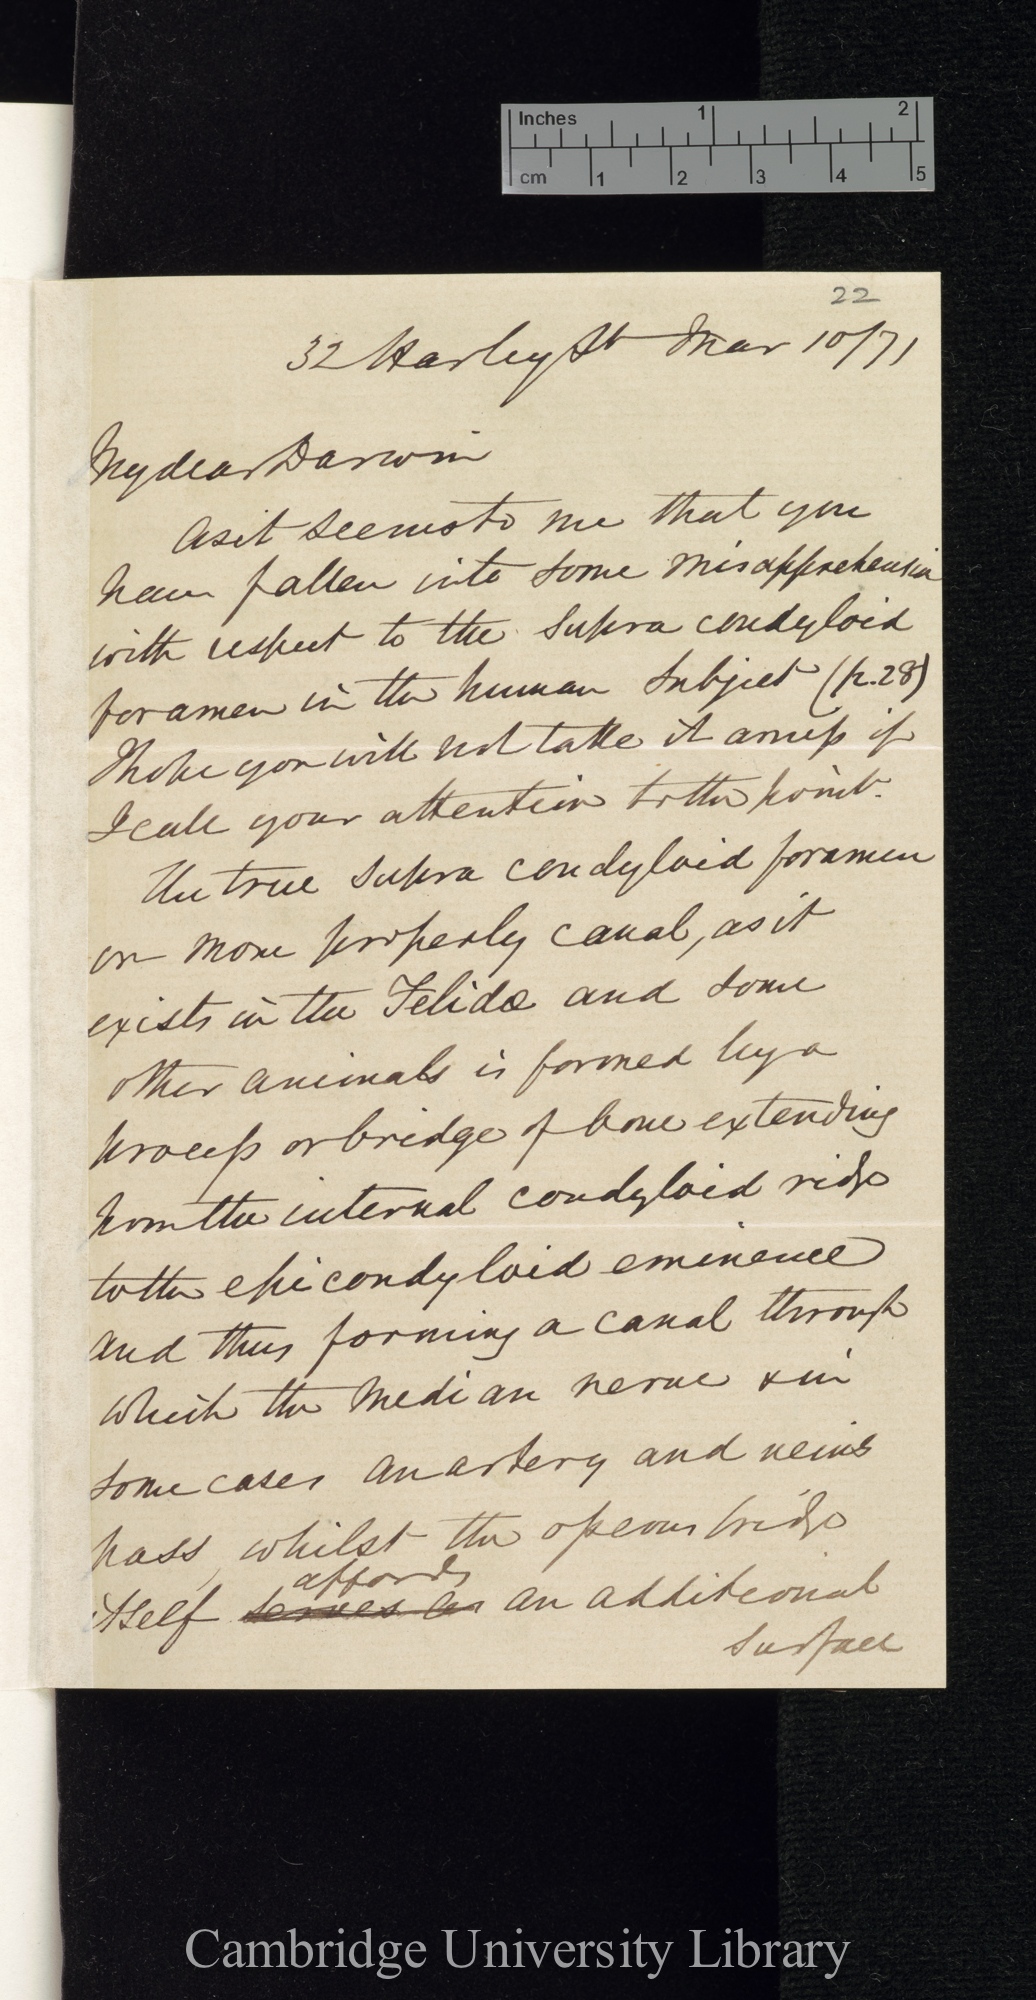 Inches 1 2
cm 1 2 3 4 5
22
32 Harley St Mar 10/71
My dear Darwin
As it seems to me that you
have fallen into some misapprehension
with respect to the supra condyloid
foramen in the human subject (p. 28)
I hope you will not take it amiss if
I call your attention to the point.
The true supra condyloid foramen
or more properly canal, as it
exists in the Felidæ and some
other animals is formed by a
process or bridge of bone extending
from the internal condyloid ridge
to the epicondyloid eminence
and thus forming a canal through
which the median nerve & in
some cases an artery and veins
pass, whilst the osseous bridge
affords
itself serves as an additional
surface
Cambridge University Library